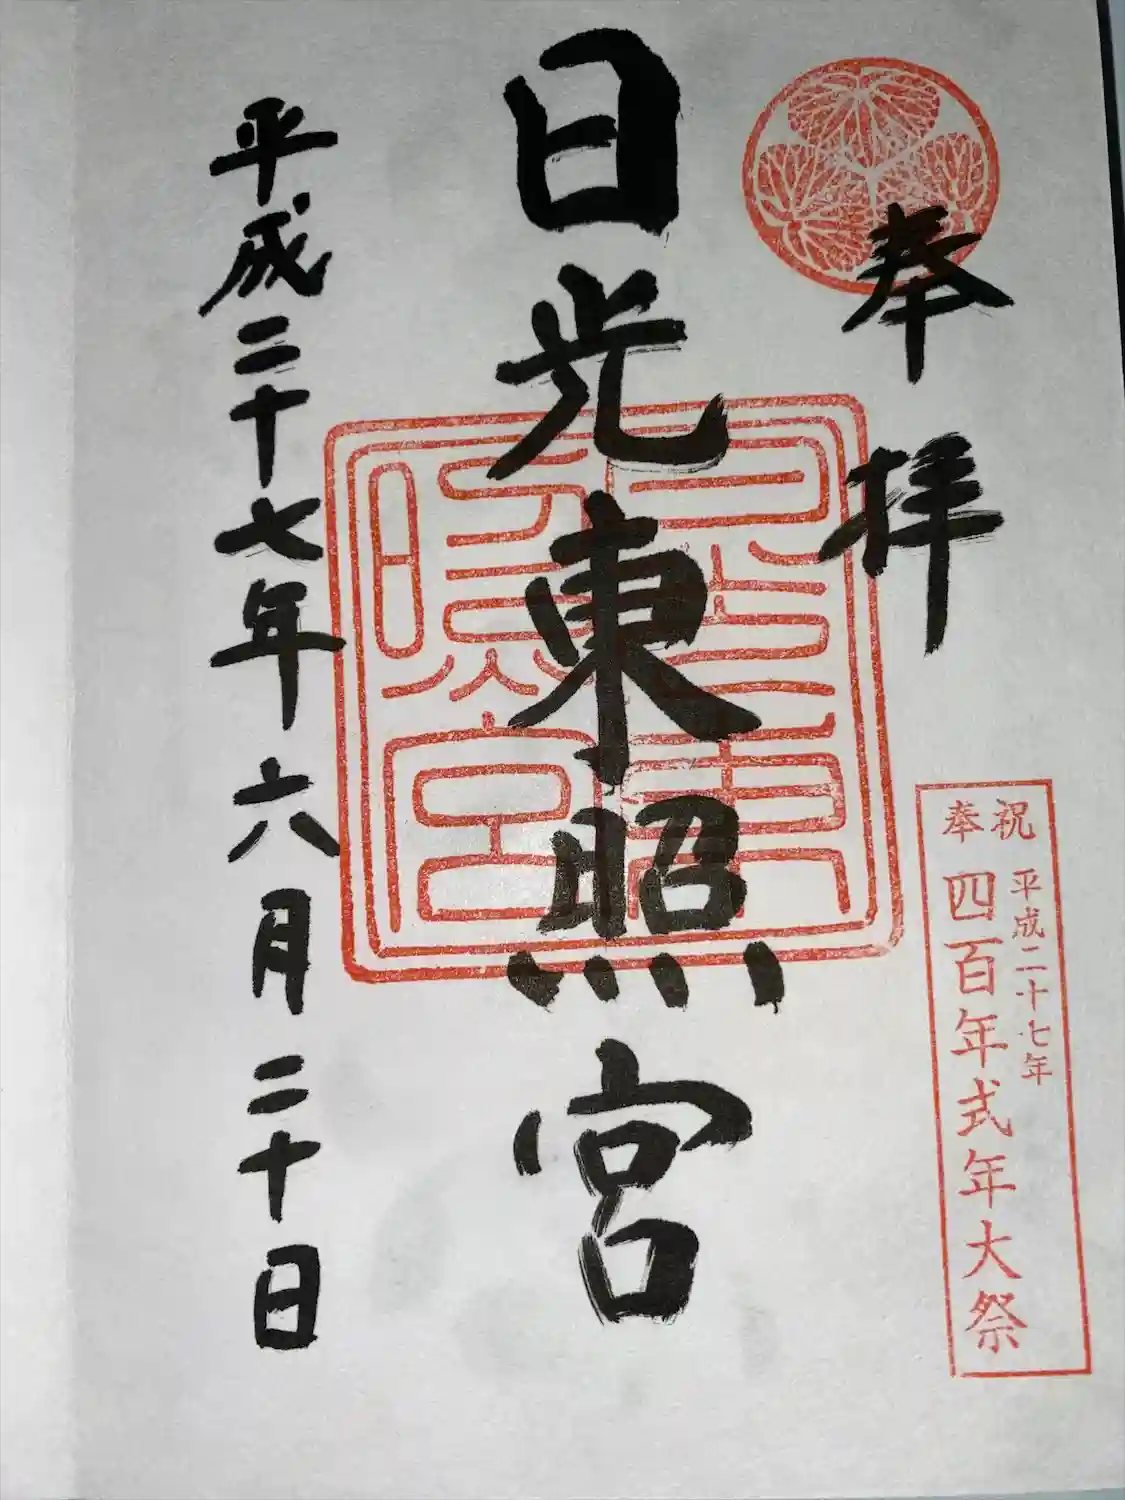 奉拝
日光東照宮
平成二十七年六月二十日
奉祝
平成二十七年
四百年式年大祭